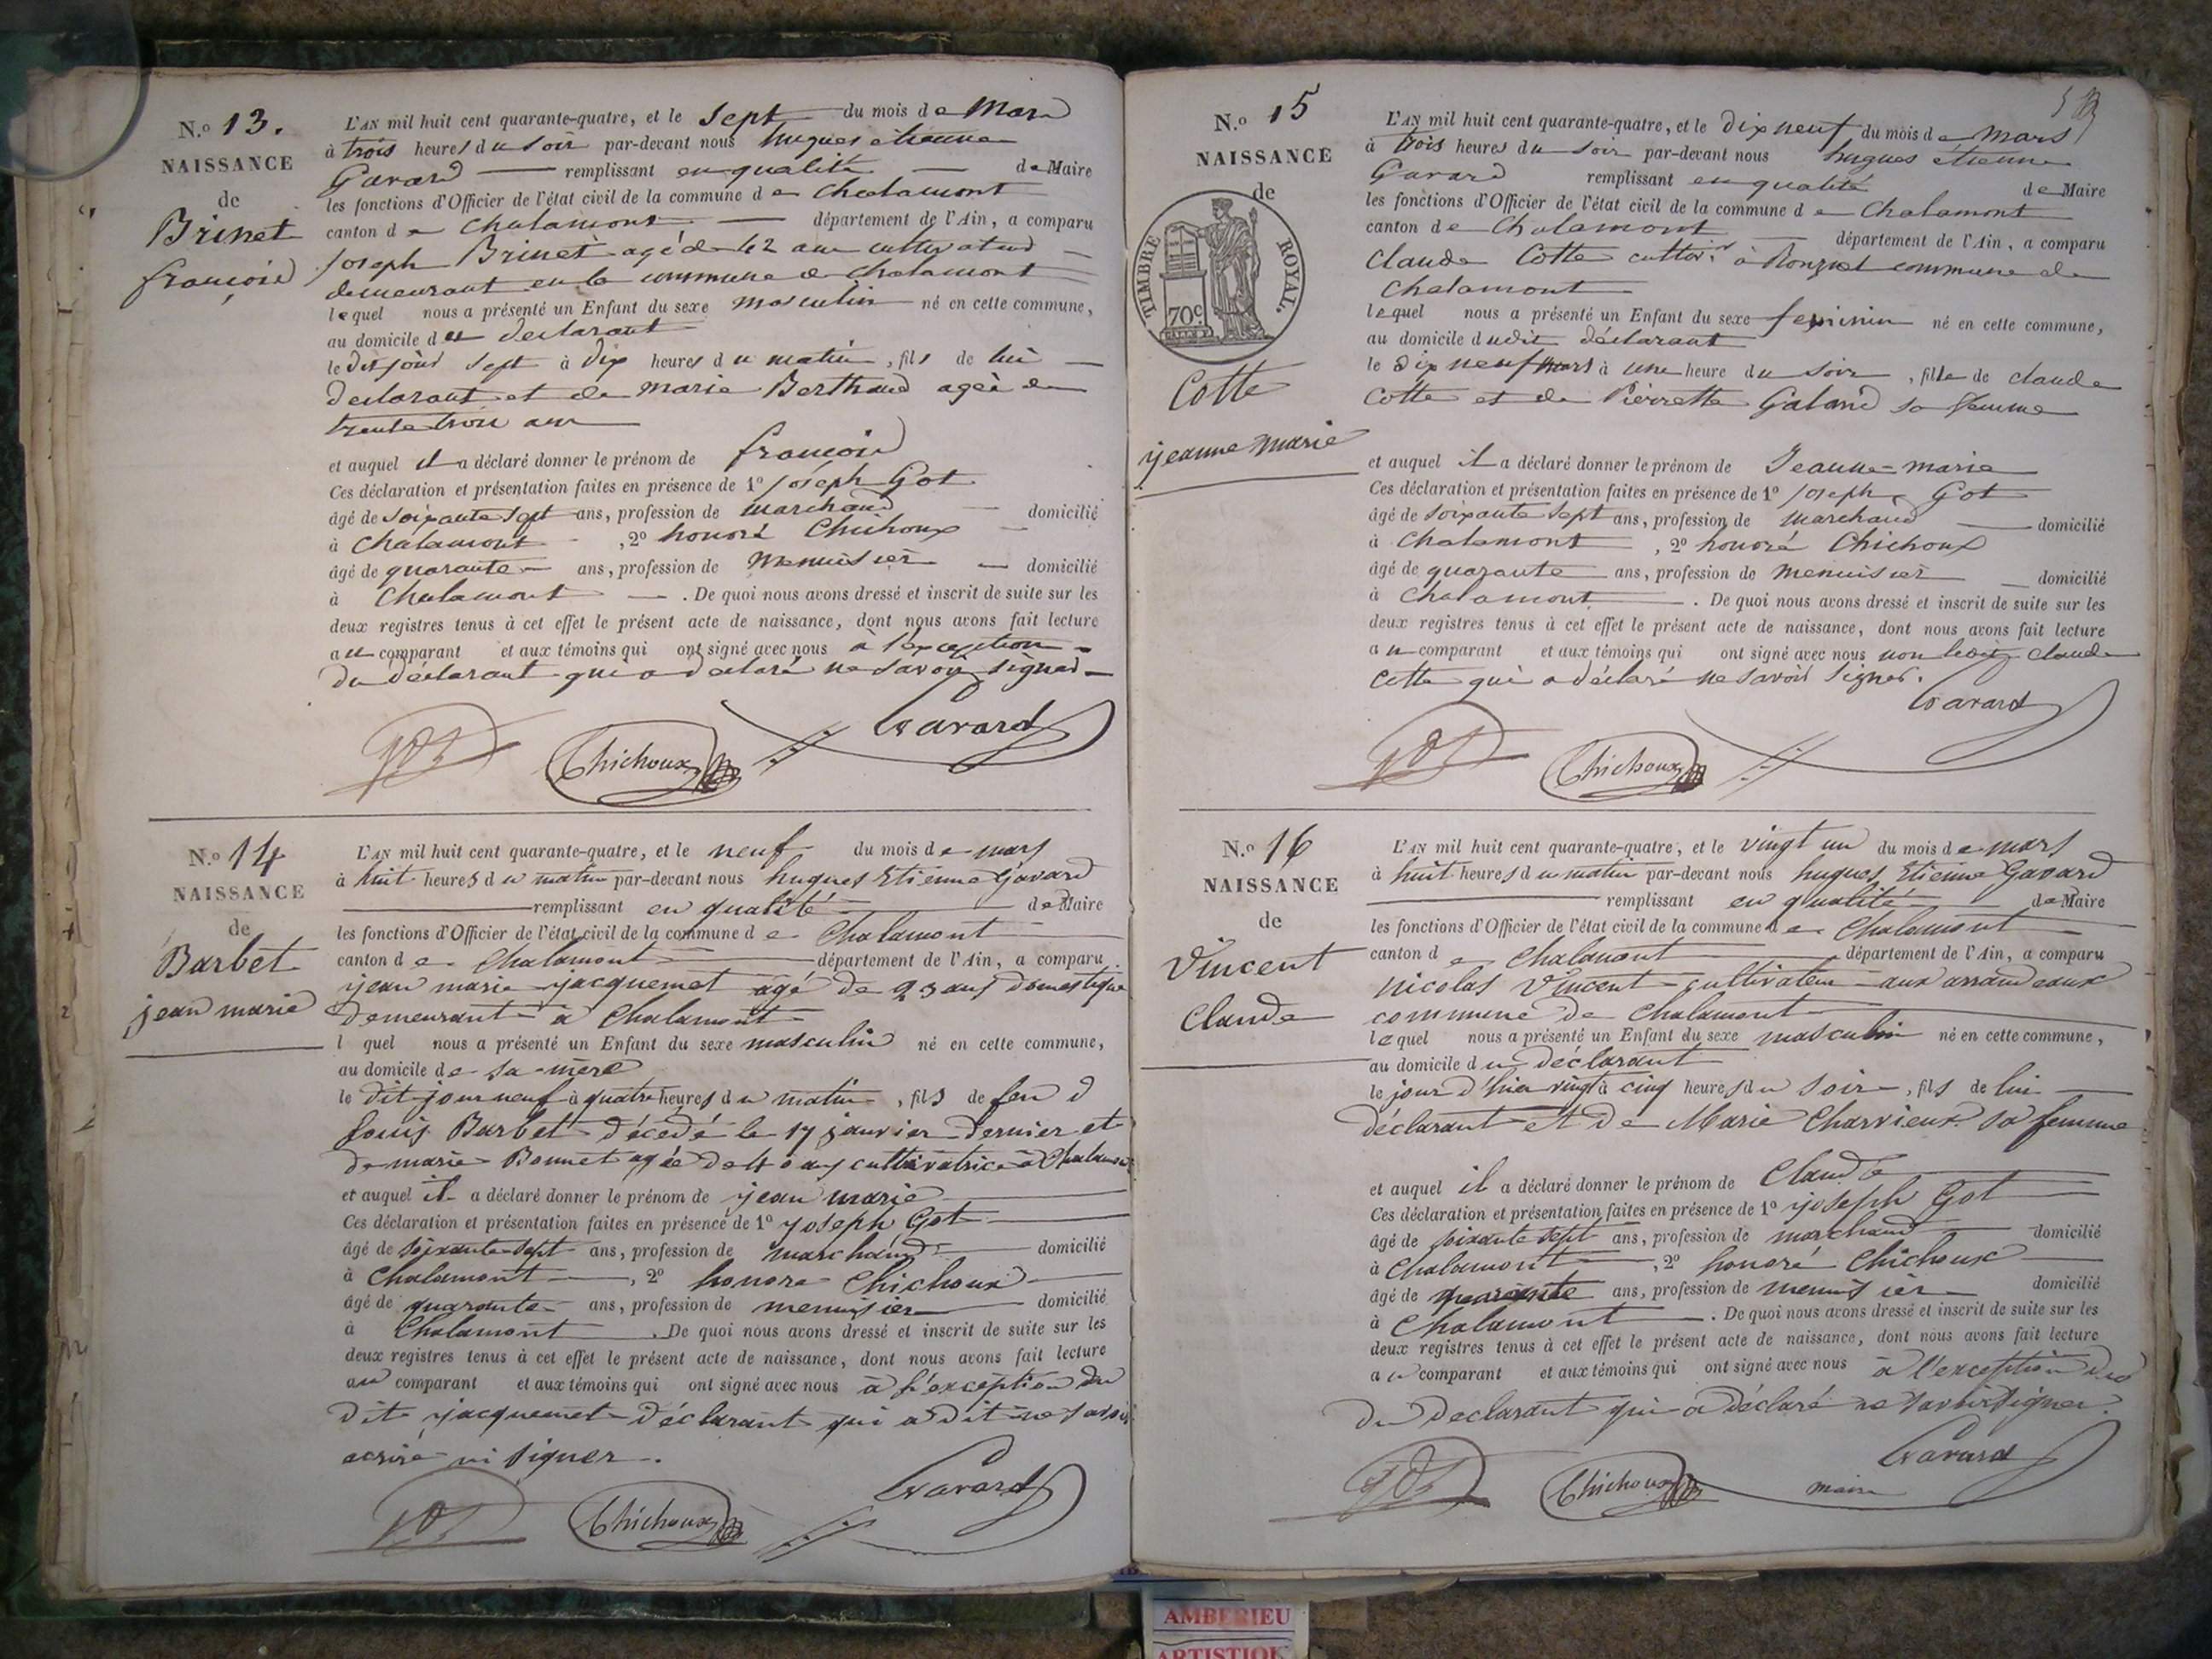 N.o 13.
NAISSANCE
de
Brinet
françois
L'AN mil huit cent quarante-quatre, et le sept du mois de Mars
à trois heures du soir par-devant nous hugues étienne
Gavard remplissant en qualité de Maire
les fonctions d'Officier de l'état civil de la commune de Chalamont
canton de Chalamont département de l'Ain, a comparu
joseph Brinet agé de 42 ans cultivateur
demeurant en la commune de Chalamont
lequel nous a présenté un Enfant du sexe masculin né en cette commune,
au domicile du declarant
le dit jour sept à dix heures du matin, fils de lui
declarant et de marie Berthaud agée de
trente trois ans
et auquel il a déclaré donner le prénom de françois
Ces déclaration et présentation faites en présence de 1o joseph Got
âgé de soixante sept ans, profession de marchand domicilié
à Chalamont, 2o honoré Chichoux
âgé de quarante ans, profession de Menuisier domicilié
à Chalamont. De quoi nous avons dressé et inscrit de suite sur les
deux registres tenus à cet effet le présent acte de naissance, dont nous avons fait lecture
au comparant et aux témoins qui ont signé avec nous à l'exception
du déclarant qui a declaré ne savoir signer
Got Chichoux Gavard
N.o 14
NAISSANCE
de
Barbet
jean marie
L'AN mil huit cent quarante-quatre, et le neuf du mois de mars
à huit heures du matin par-devant nous hugues Etienne Gavard
remplissant en qualité de Maire
les fonctions d'Officier de l'état civil de la commune de Chalamont
canton de Chalamont département de l'Ain, a comparu
jean marie jacquemet agé de 23 ans domestique
demeurant a Chalamont
l quel nous a présenté un Enfant du sexe masculin né en cette commune,
au domicile de sa mere
le dit jour neuf à quatre heures du matin, fils de feu
Louis Barbet décédé le 17 janvier dernier et
de marie Bonnet agée de 40 ans cultivatrice à Chalamont
et auquel il a déclaré donner le prénom de jean marie
Ces déclaration et présentation faites en présence de 1o joseph Got
âgé de soixante sept ans, profession de marchand domicilié
à Chalamont, 2o honoré Chichoux
âgé de quarante ans, profession de menuisier domicilié
à Chalamont. De quoi nous avons dressé et inscrit de suite sur les
deux registres tenus à cet effet le présent acte de naissance, dont nous avons fait lecture
au comparant et aux témoins qui ont signé avec nous à l'exception du
dit jacquemet déclarant qui a dit ne savoir
ecrire ni signer.
Got Chichoux Gavard
N.o 15
NAISSANCE
de
TIMBRE ROYAL.
70c.
Cotte
jeanne marie
L'AN mil huit cent quarante-quatre, et le dix neuf du mois de mars
à trois heures du soir par-devant nous hugues étienne
Gavard remplissant en qualité de Maire
les fonctions d'Officier de l'état civil de la commune de Chalamont
canton de Chalamont département de l'Ain, a comparu
Claude Cotte cultivr à Ronzuel commune de
Chalamont
lequel nous a présenté un Enfant du sexe feminin né en cette commune,
au domicile dudit déclarant
le dix neuf mars à une heure du soir, fille de claude
Cotte et de Pierrette Galand sa femme
et auquel il a déclaré donner le prénom de Jeanne-marie
Ces déclaration et présentation faites en présence de 1o joseph Got
âgé de soixante sept ans, profession de marchand domicilié
à Chalamont, 2o honoré Chichoux
âgé de quarante ans, profession de menuisier domicilié
à Chalamont. De quoi nous avons dressé et inscrit de suite sur les
deux registres tenus à cet effet le présent acte de naissance, dont nous avons fait lecture
au comparant et aux témoins qui ont signé avec nous non ledit claude
Cotte qui a déclaré ne savoir signer.
Got Chichoux Gavard
N.o 16
NAISSANCE
de
Vincent
Claude
L'AN mil huit cent quarante-quatre, et le vingt un du mois de mars
à huit heures du matin par-devant nous hugues Etienne Gavard
remplissant en qualité de Maire
les fonctions d'Officier de l'état civil de la commune de Chalamont
canton de Chalamont département de l'Ain, a comparu
nicolas Vincent cultivateur aux arrandeaux
commune de Chalamont
lequel nous a présenté un Enfant du sexe masculin né en cette commune,
au domicile du déclarant
le jour d'hier vingt à cinq heures du soir, fils de lui
déclarant et de Marie Charvieux sa femme
et auquel il a déclaré donner le prénom de Claude
Ces déclaration et présentation faites en présence de 1o joseph Got
âgé de soixante sept ans, profession de marchand domicilié
à Chalamont, 2o honoré Chichoux
âgé de quarante ans, profession de menuisier domicilié
à Chalamont. De quoi nous avons dressé et inscrit de suite sur les
deux registres tenus à cet effet le présent acte de naissance, dont nous avons fait lecture
au comparant et aux témoins qui ont signé avec nous à l'exception
du declarant qui a déclaré ne savoir signer.
Got Chichoux Gavard
maire
AMBERIEU
ARTISTIQ